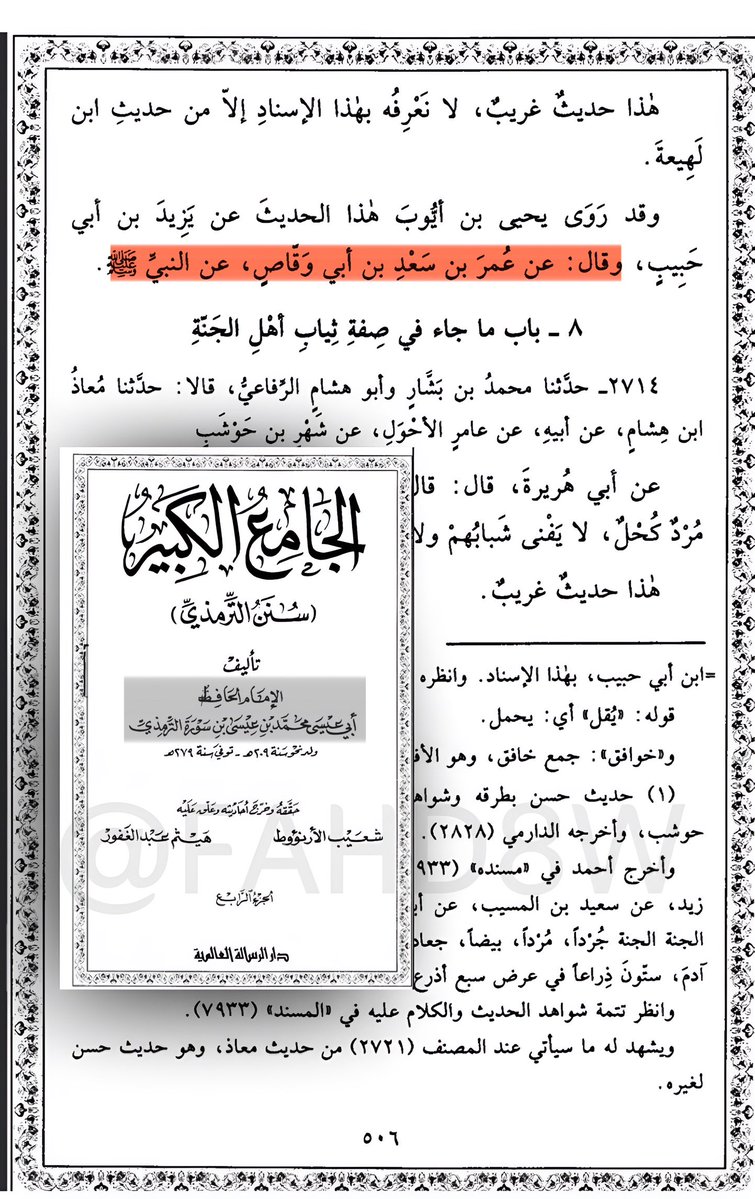 هٰذا حديثٌ غريبٌ، لا نَعْرِفُه بهٰذا الإسنادِ إلاّ من حديثِ ابن
لَهِيعةَ.
وقد رَوَى يحيى بن أيُّوبَ هٰذا الحديثَ عن يَزِيدَ بن أبي
حَبِيبٍ، وقال: عن عُمرَ بن سَعْدِ بن أبي وَقّاصٍ، عن النبيِّ ﷺ.
٨ ـ باب ما جاء في صِفةِ ثِيابِ أهْلِ الجَنّةِ
٢٧١٤ـ حدَّثنا محمدُ بن بَشَّارٍ وأبو هشامٍ الرِّفاعيُّ، قالا: حدَّثنا مُعاذُ
ابن هِشامٍ، عن أبيهِ، عن عامرٍ الأحْوَلِ، عن شَهْرِ بن حَوْشَبٍ
عن أبي هُريرةَ، قال: قال
مُرْدٌ كُحْلٌ، لا يَفْنى شَبابُهمْ ولا
هٰذا حديثٌ غريبٌ.
=ابن أبي حبيب، بهٰذا الإسناد. وانظره
قوله: «يُقل» أي: يحمل.
و«خوافق»: جمع خافق، وهو الأفـ
(١) حديث حسن بطرقه وشواهـ
حوشب، وأخرجه الدارمي (٢٨٢٨).
وأخرج أحمد في «مسنده» (٩٣٣
زيد، عن سعيد بن المسيب، عن أبـ
الجنة الجنة جُرْداً، مُرْداً، بيضاً، جعاد
آدمَ، ستّونَ ذِراعاً في عرض سبع أذرع
وانظر تتمة شواهد الحديث والكلام عليه في «المسند» (٧٩٣٣).
ويشهد له ما سيأتي عند المصنف (٢٧٢١) من حديث معاذ، وهو حديث حسن
لغيره.
٥٠٦
الجَامِعُ الكَبِيرُ
(سُنَنُ التِّرمذيِّ)
تأليف
الإمَام الحَافِظ
أبي عيسى محمّد بن عيسى بن سَوْرَة الترمذي
ولد نحو سنة ٢٠٩هـ - توفي سنة ٢٧٩هـ
حَقّقَهُ وخرّج أحاديثه وعلّق عَليه
شعَيب الأرنؤوط هيثم عبد الغفور
الجزء الرّابع
دار الرسالة العالمية
@FAHD8W